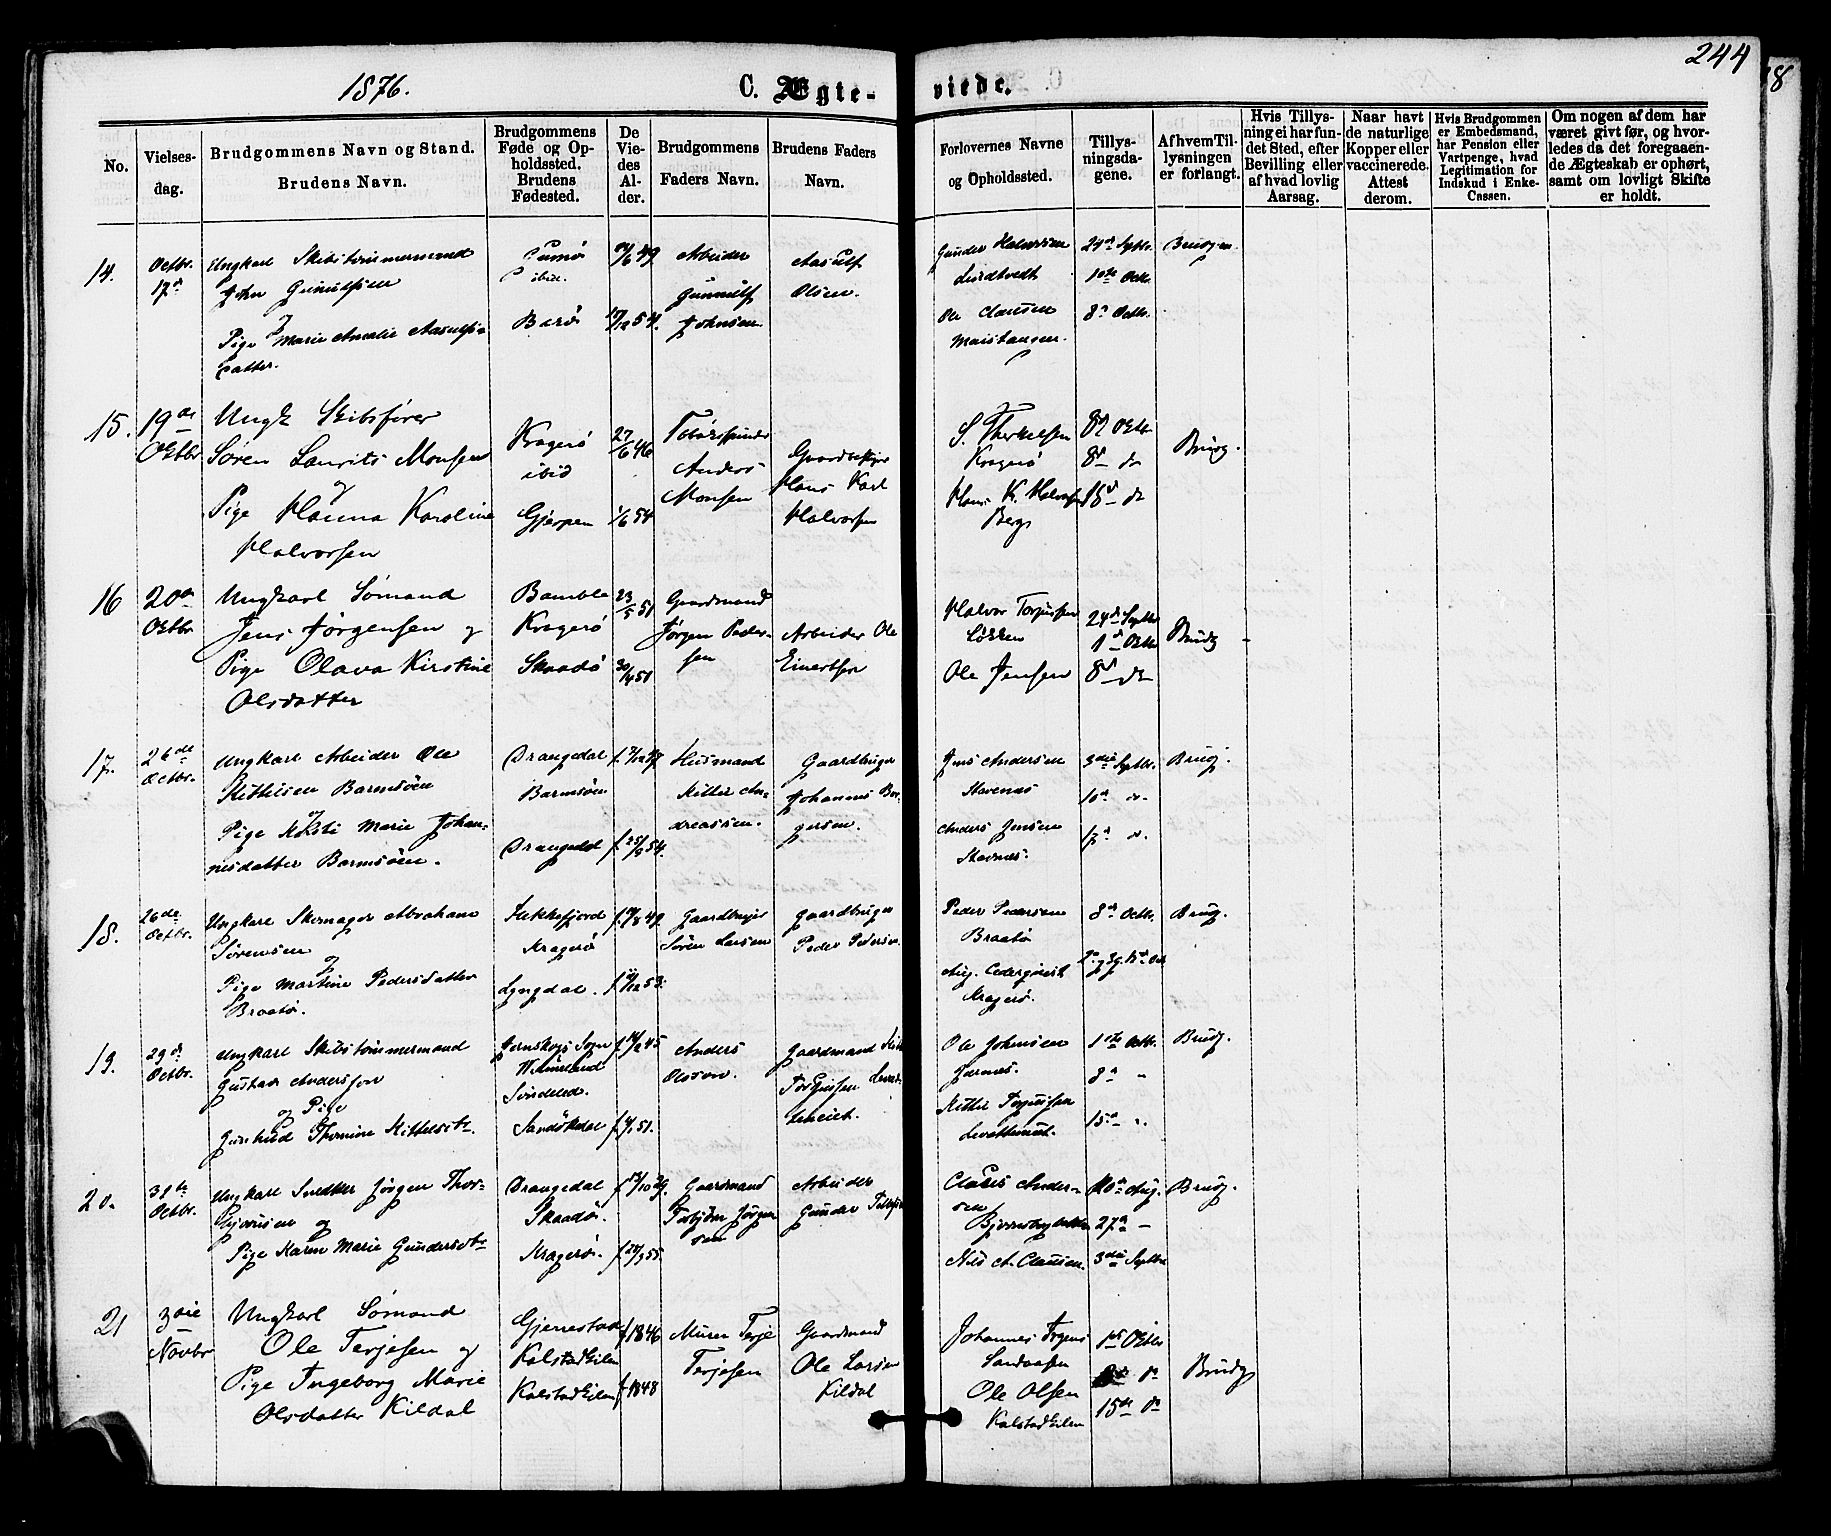 1876.
C. Ægte-
viede.
244
8
No.
Vielses-
dag.
Brudgommens Navn og Stand.
Brudens Navn.
Brudgommens
Føde og Op-
holdssted.
Brudens
Fødested.
De
Vie-
des
Al-
der.
Brudgommens
Faders Navn.
Brudens Faders
Navn.
Forlovernes Navne
og Opholdssted.
Tillys-
ningsda-
gene.
Af hvem Til-
lysningen
er forlangt.
Hvis Tillys-
ning ei har fun-
det Sted, efter
Bevilling eller
af hvad lovlig
Aarsag.
Naar havt
de naturlige
Kopper eller
vaccinerede.
Attest
derom.
Hvis Brudgommen
er Embedsmand,
har Pension eller
Vartpenge, hvad
Legitimation for
Indskud i Enke-
Cassen.
Om nogen af dem har
været givt før, og hvor-
ledes da det foregaaen-
de Ægteskab er ophørt,
samt om lovligt Skifte
er holdt.
14.
Octbr.
17d
Ungkarl Skibstømmermand
John Gunulfsen
og
Pige Marie Amalie Aasulfs-
datter.
ibid.
Barø
Arbeider
Gunnulf
Johnsen.
Aasulf
Olsen.
Gunder Halvorsen
Lindtvedt
Ole Clausen
24d Septbr.
1ste Octb.
8d Octbr.
Brudgm.
15.
19de
Octbr
Ungk Skibsfører
Søren Laurits Monsen
og
Pige Hanna Karoline
Halvorsen
Kragerø
ibid
Gjerpen
27/6 46
1/6 54
Anders
Monsen
Hans Karl
Halvorsen
S. Therkelsen
Kragerø
Hans K. Halvorsen
Berg
8d do
15d do
Brudg.
16
20de
Octbr
Ungkarl Sømand
Jens Jørgensen og
Pige Olava Kirstine
Olsdatter
Bamble
Kragerø
Skaadø
23/5 51
30/4 51
Gaardmand
Jørgen Peder-
sen
Arbeider Ole
Einertsen
Halvor Torjussen
Løkken
Ole Jensen
24de Septbr
1d Octbr
8d do
Brudg
17.
26de
Octbr.
Ungkarl Arbeider Ole
Kittilsen Barmsøen
og
Pige Kirsti Marie Johan-
nesdatter Barmsøen.
Drangedal
Barmsøen
Drangedal
f. 25/9 54.
Husmand
Kittil An-
dreassen.
Gaardbruger
Johannes Bor-
gersen.
Jens Andersen
Stavenæs
Anders Jensen
Stavnæs.
3die Septbr.
10d do.
17d do.
Brudg.
18.
26de
Octbr.
Ungkarl Skomager Abraham
Sørensen
og
Pige Martine Pedersdatter
Braatø.
Flekkefjord
Kragerø
Lyngdal.
Gaardbruger
Søren Larsen
Gaardbruger
Peder Pedersen
Peder Pedersen
Braatø
Aug. Cederqvist
Kragerø.
8d Octbr.
Brudg.
19.
29d
Octbr.
Ungkarl Skibstømmermand
Gustav Andersson
og Pige
Gunhild Thomine Kittelsdtr.
Jernskogs Sogn
Wermland
Søndeled.
Sandøkedal
Anders
Olsson.
Gaardmand Kittil
Torjussen
Ole Johnsen
Furnæs.
Kittil Torjussen
1ste Octbr.
8d "
15d ".
Brudg.
20.
31te
Octbr.
Ungkarl Snedker Jørgen Thor-
bjørnsen og
Pige Karen Marie Gundersdtr
Drangedal
Skaadø.
Kragerø.
Gaardmand
Torbjörn Jørgen-
sen
Arbeider
Gunder Tellefsen
Claus Ander-
sen
Nils A. Clausen.
20d Aug.
27d -
3die Septbr
Brudg.
21
3die
Novbr
Ungkarl Sømand
Ole Terjesen og
Pige Ingeborg Marie
Olsdatter Kildal
Gjerrestad
Kalstadkilen
Kalstadkilen
f. 1846
f. 1848
Murer Terje
Terjesen
Gaardmand
Ole Larsen
Kildal
Johannes
Sandaasen
Ole Olsen
Kalstadkilen
1st Octbr
8de do
15de do
Brudg